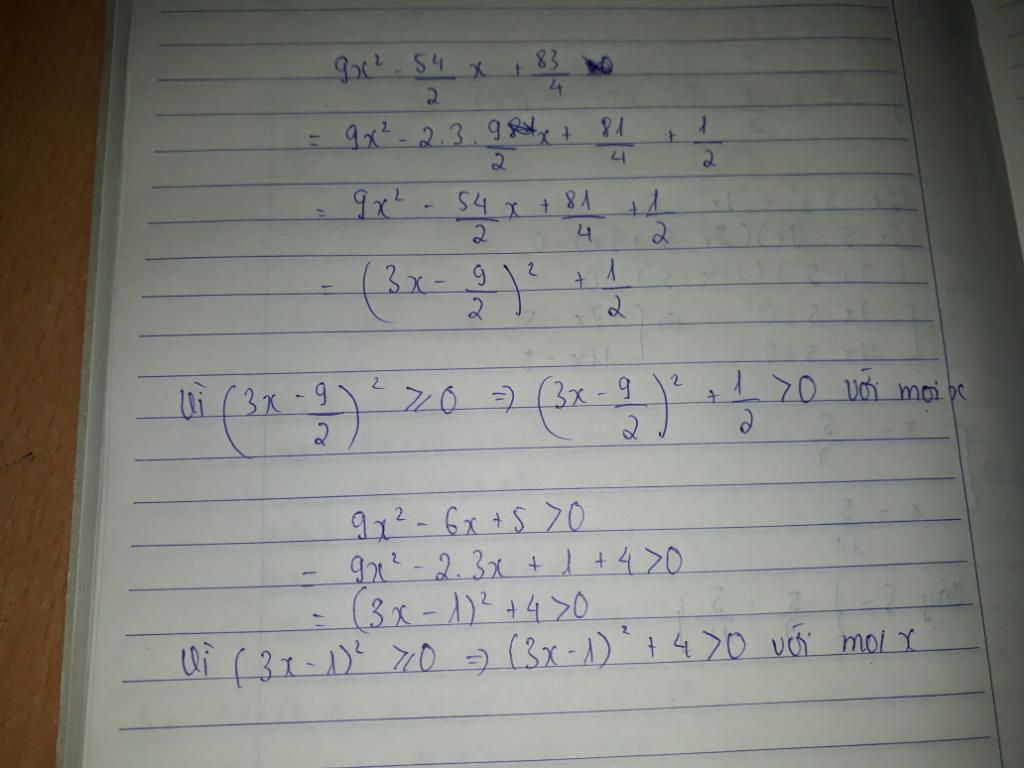 9x² - 54/2 x + 83/4
= 9x² - 2.3.9/2 x + 81/4 + 1/2
= 9x² - 54/2 x + 81/4 + 1/2
= (3x - 9/2)² + 1/2
Vì (3x - 9/2)² ⩾ 0 => (3x - 9/2)² + 1/2 > 0 với mọi x
9x² - 6x + 5 > 0
= 9x² - 2.3x + 1 + 4 > 0
= (3x - 1)² + 4 > 0
Vì (3x - 1)² ⩾ 0 => (3x - 1)² + 4 > 0 với mọi x